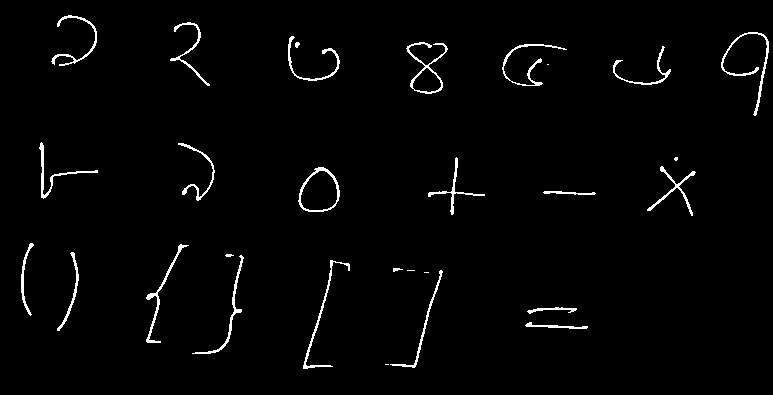 ১ ২ ৩ ৪ ৫ ৬ ৭
৮ ৯ ০ + - ×
() {} [] =